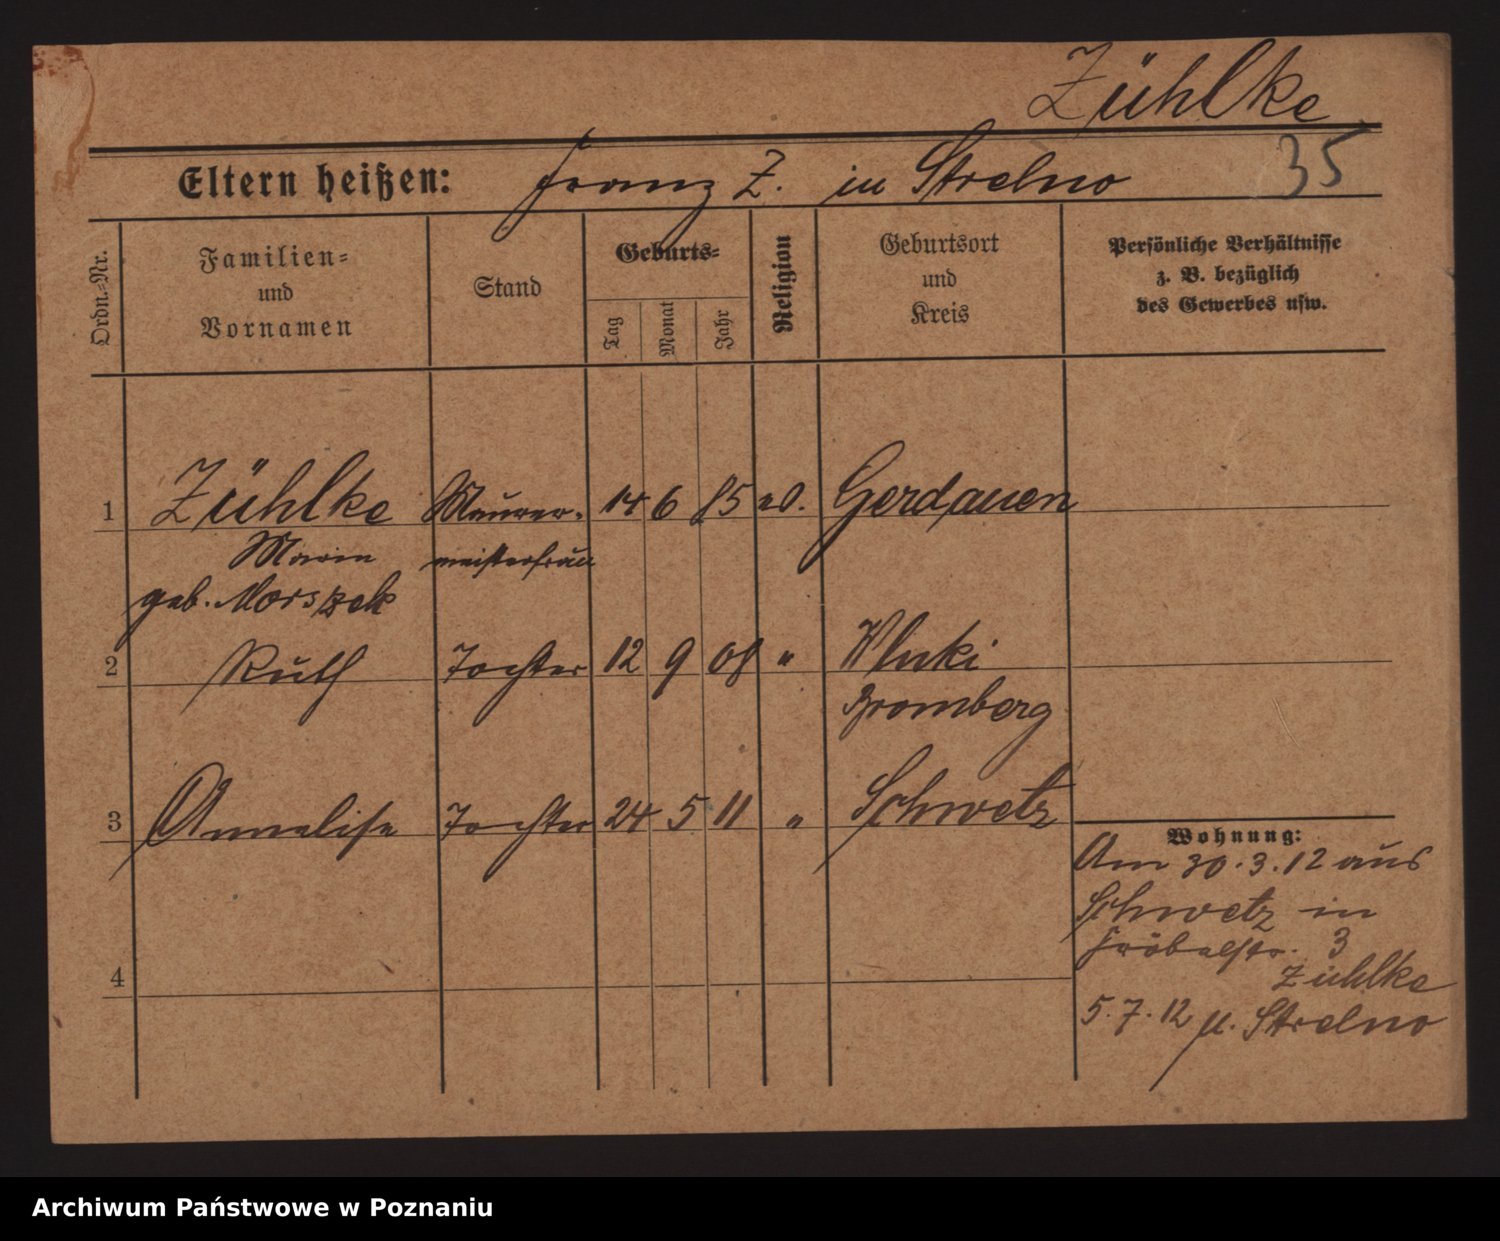 Zühlke
35
Eltern heißen: Franz Z. in Strelno
Ordn.-Nr.
Familien-
und
Vornamen
Stand
Geburts-
Tag
Monat
Jahr
Religion
Geburtsort
und
Kreis
Persönliche Verhältnisse
z. B. bezüglich
des Gewerbes usw.
1 Zühlke Maurer- 14 6 85 ev. Gerdauen
Marie meisterfrau
geb. Morszek
2 Ruth Tochter 12 9 08 "
Bromberg
3 Annelise Tochter 24 5 11 " Schwetz
4
Wohnung:
Am 30.3.12 aus
Schwetz in
Fröbelstr. 3
Zühlke
5.7.12 n. Strelno
Archiwum Państwowe w Poznaniu